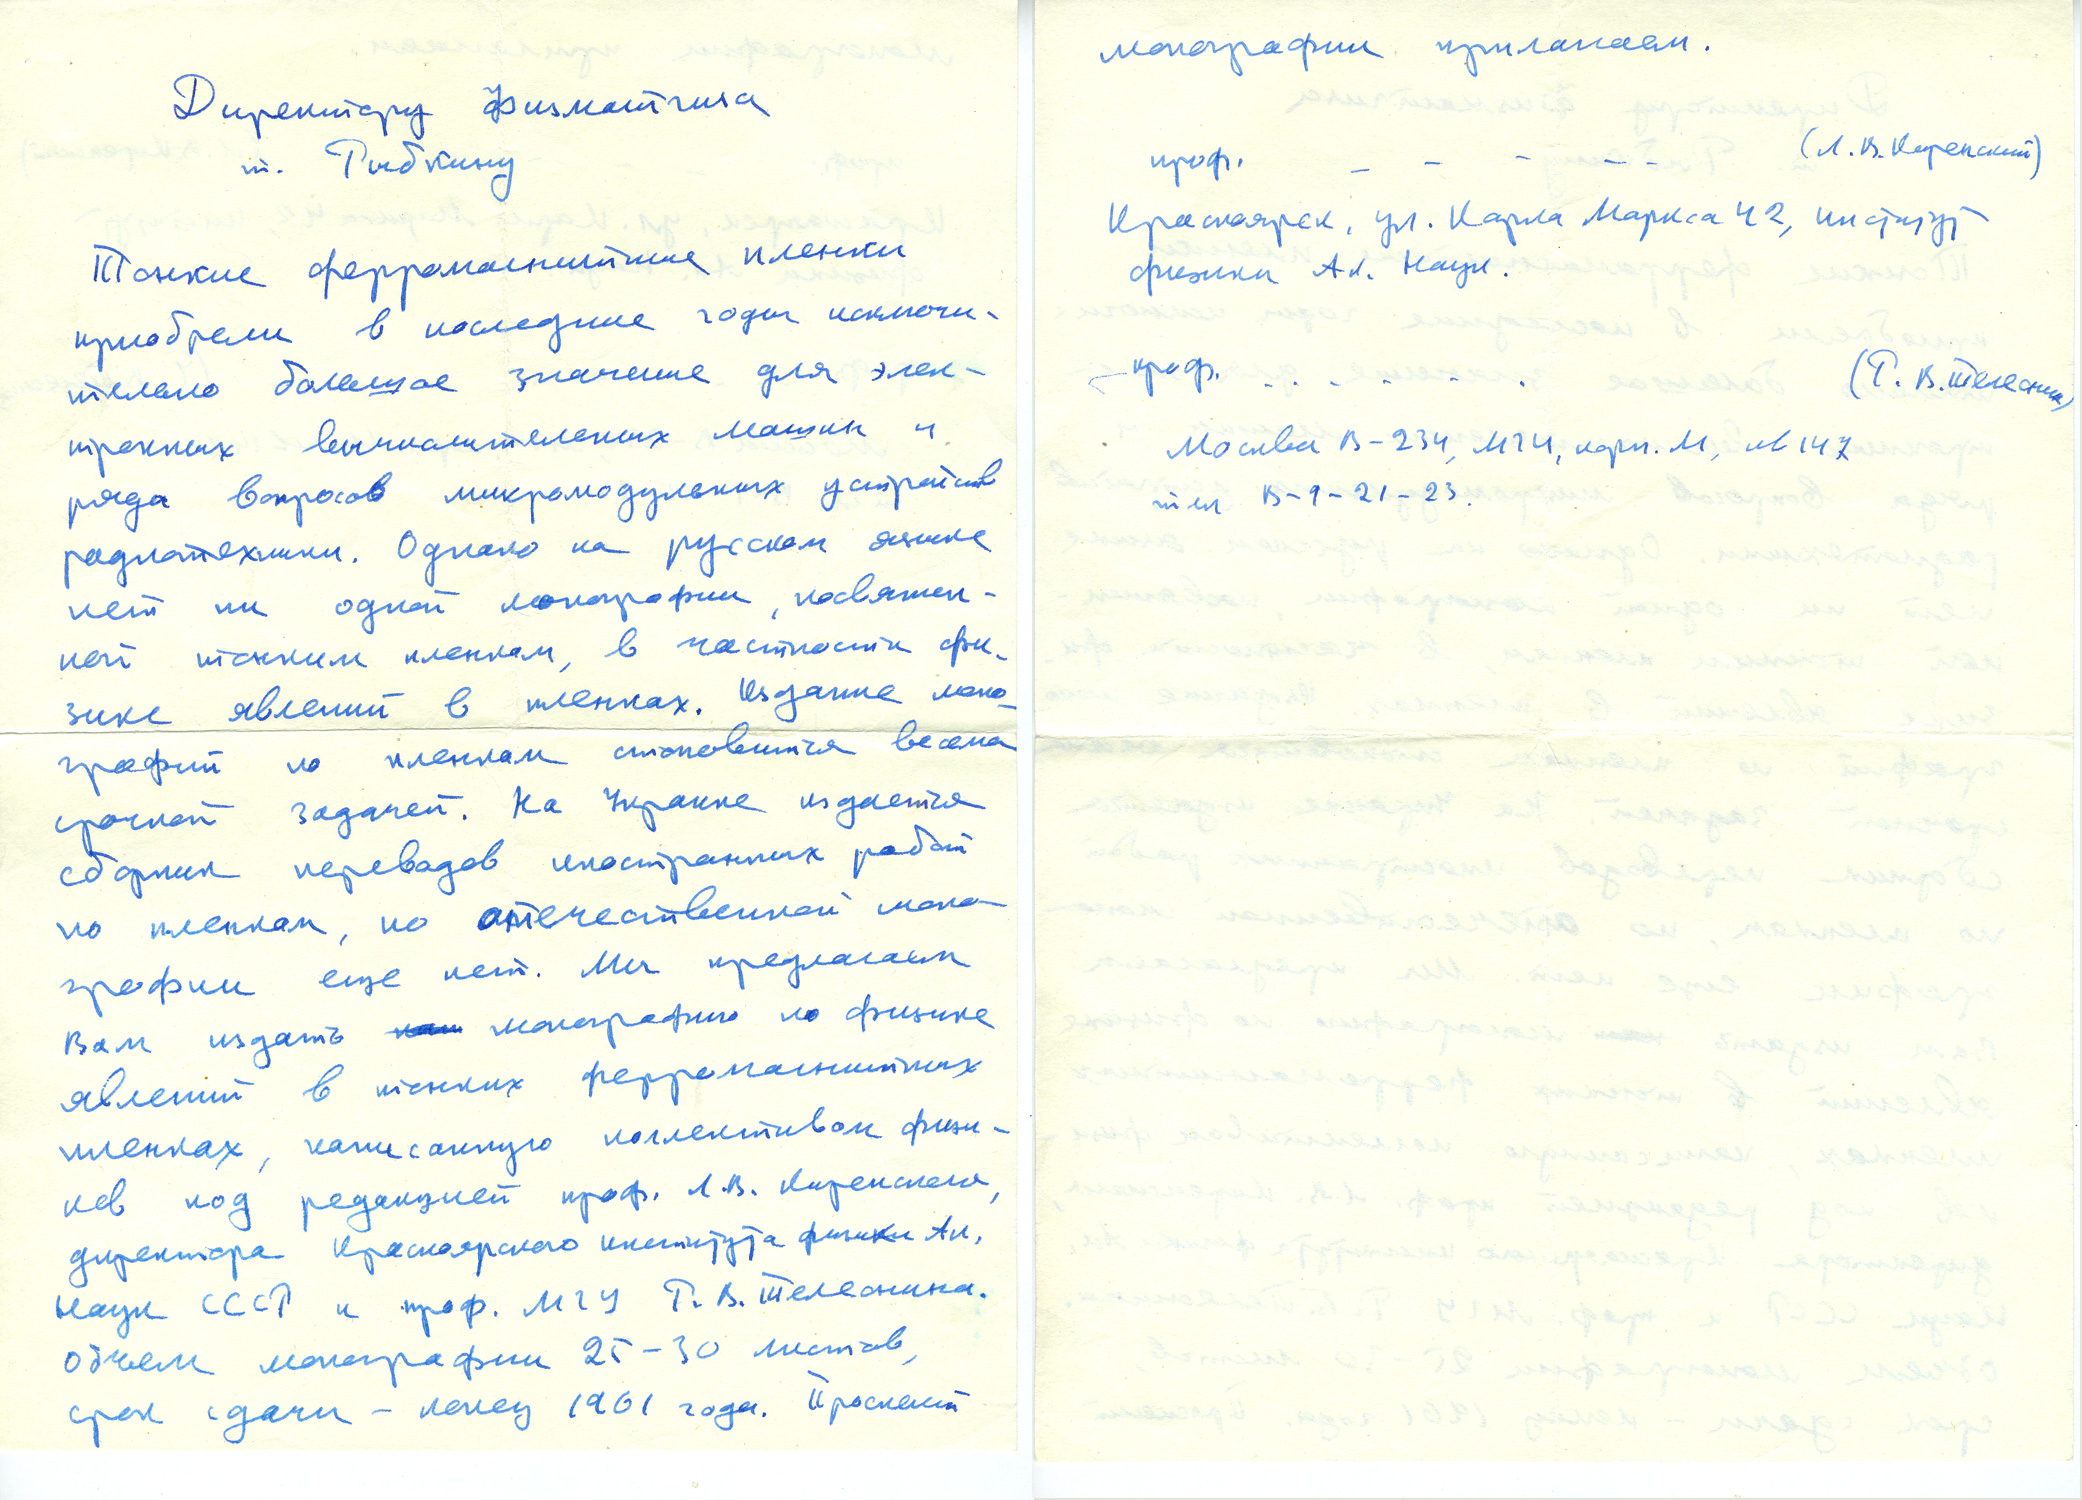 Директору Физматгиза
т. Рыбкину
Тонкие ферромагнитные пленки
приобрели в последние годы исключи-
тельно большое значение для элек-
тронных вычислительных машин и
ряда вопросов микромодульных устройств
радиотехники. Однако на русском языке
нет ни одной монографии, посвящен-
ной тонким пленкам, в частности фи-
зике явлений в пленках. Издание моно-
графий по пленкам становится весьма
срочной задачей. На Украине издается
сборник переводов иностранных работ
по пленкам, но отечественной моно-
графии еще нет. Мы предлагаем
Вам издать монографию по физике
явлений в тонких ферромагнитных
пленках, написанную коллективом физи-
ков под редакцией проф. Л.В. Киренского,
директора Красноярского института физики Ак.
Наук СССР и проф. МГУ Р.В. Телеснина.
Объем монографии 25-30 листов,
срок сдачи – конец 1961 года. Проспект
монографии прилагаем.
проф. – – – – – (Л.В. Киренский)
Красноярск, ул. Карла Маркса 42, институт
физики Ак. Наук.
проф. - - - - - - (Р.В. Телеснин)
Москва В-234, МГУ, корп. М, № 147
тел В-9-21-23.